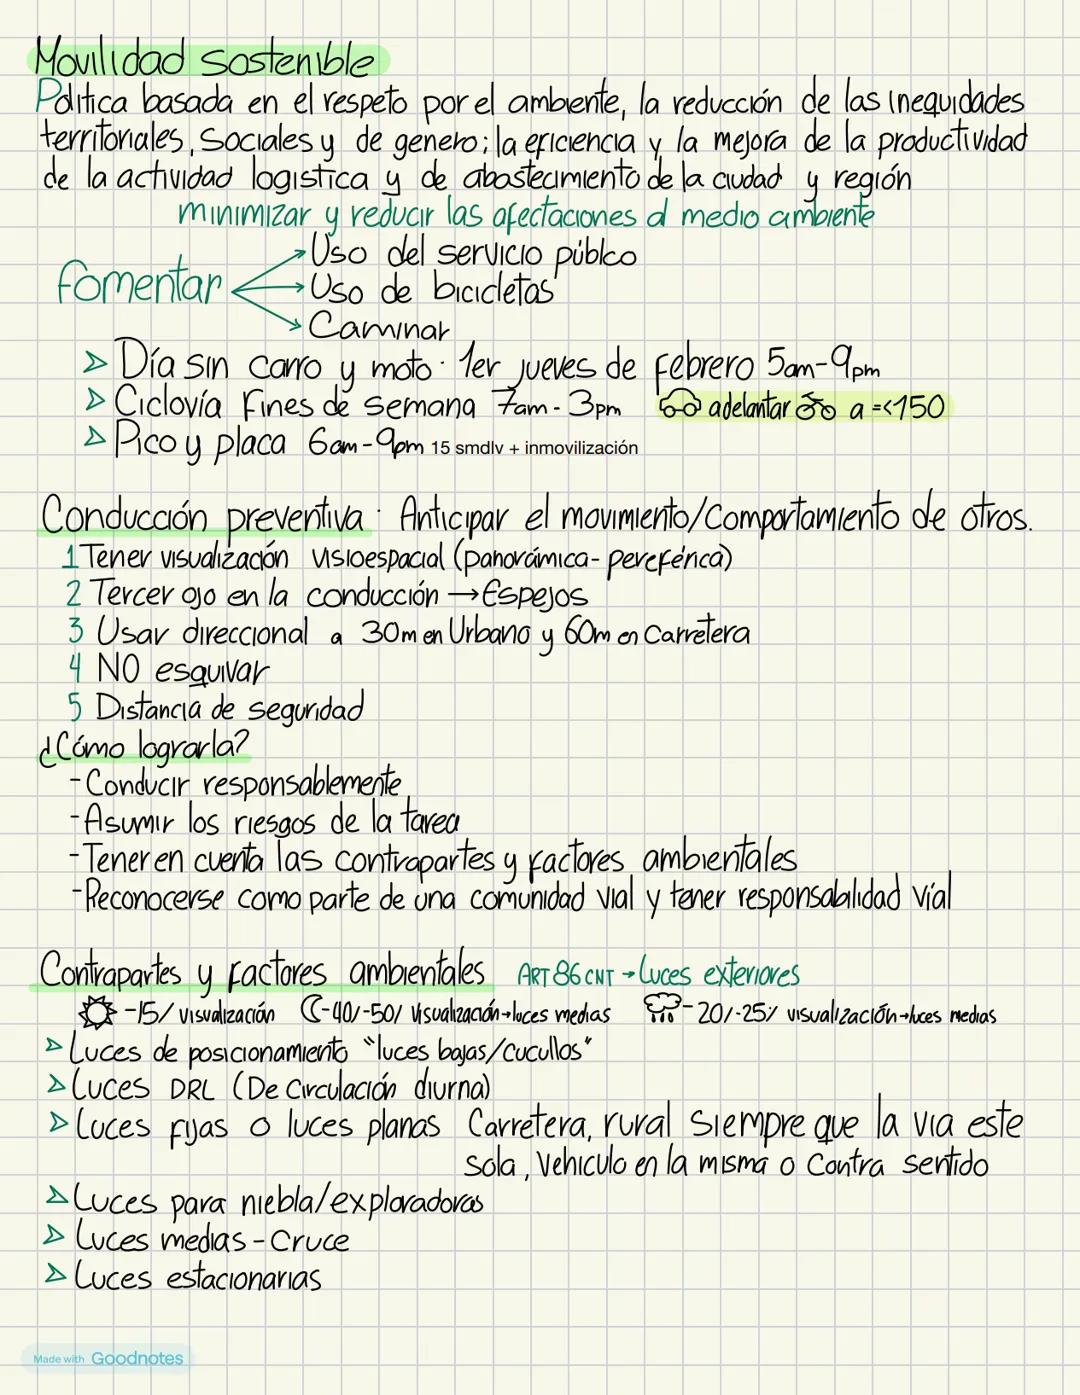 Movilidad sostenible
Política basada en el respeto por el ambiente, la reducción de las inequidades
territoriales, Sociales y de genero; la eficiencia y la mejora de la productividad
de la actividad logistica y de abastecimiento de la ciudad y región
minimizar y reducir las afectaciones al medio ambiente
Uso del servicio públco
fomentar Uso de bicicletas
Caminar
Día sin carro y moto. 1er jueves de febrero 5am-9pm
Ciclovía Fines de semana 7am-3pm adelantar a =<150
Pico y placa 6am-9pm 15 smdlv + inmovilización
Conducción preventiva: Anticipar el movimiento/Comportamiento de otros.
1 Tener visualización visioespacial (panorámica-pereférica)
2 Tercer ojo en la conducción → Espejos
3 Usar direccional a 30m en Urbano y 60m en Carretera
4 NO esquivar
5 Distancia de seguridad
¿Cómo lograrla?
-Conducir responsablemente
-Asumir los riesgos de la tarea
-Tener en cuenta las contrapartes y factores ambientales
-Reconocerse como parte de una comunidad vial y tener responsabilidad víal
Contrapartes y factores ambientales ART 86 CNT → Luces exteriores
-15/ visualización -40/-50/ visualización→luces medias -20/-25% visualización→luces medias
Luces de posicionamiento "luces bajas/cucullos"
Luces DRL (De Circulación diurna)
Luces fijas o luces planas Carretera, rural Siempre que la via este
sola, Vehiculo en la misma o Contra sentido
Luces para niebla/exploradoras
Luces medias-Cruce
Luces estacionarias
Made with Goodnotes